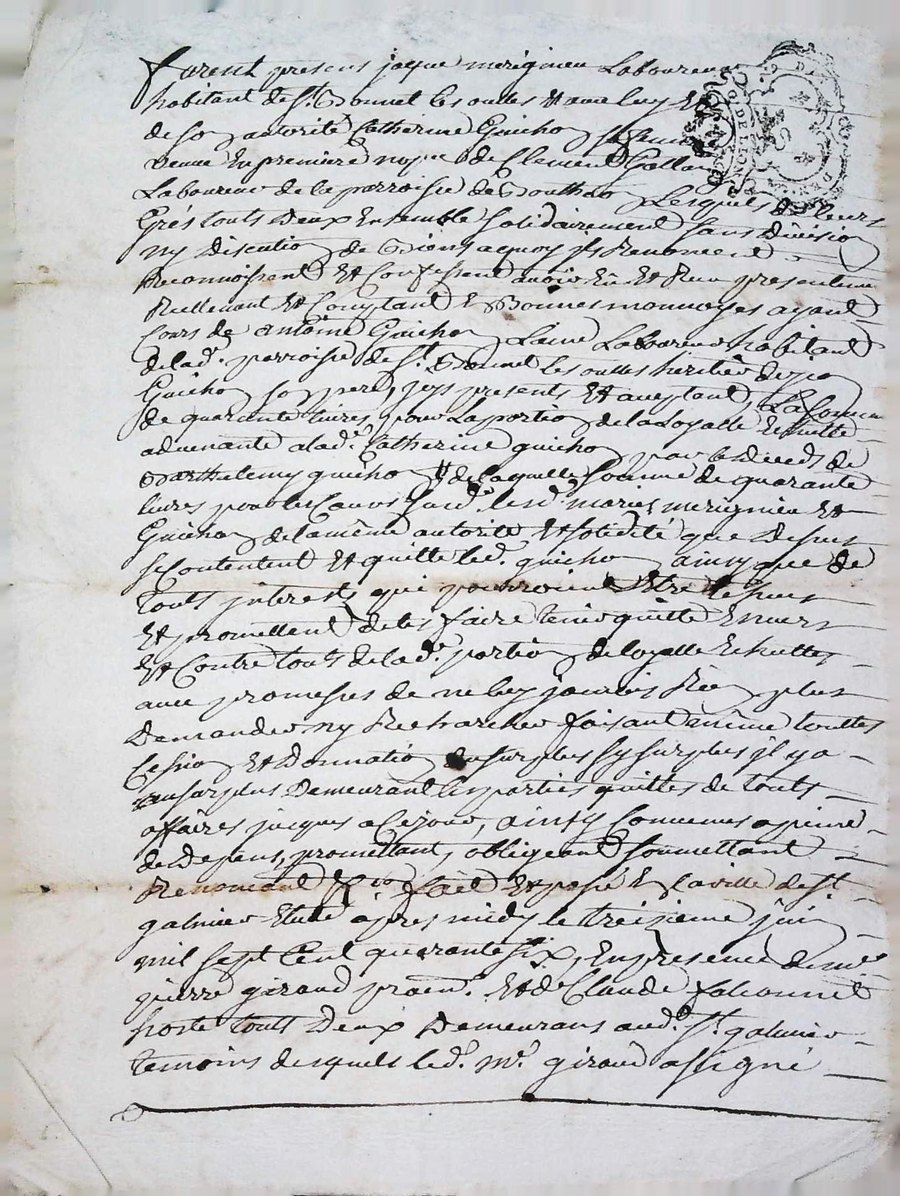 furent presens jaque merigneu Laboureur
habitant de St. Bonnet les oulles Et avec luy Et
de son autorité Catherine Guichon sa femme
veuve En premiere nopce de Clement
Laboureur de la parroisse de Bouthéon Lesquels de Leurs
Grés touts Deux Ensemble solidairement sans Division
ny Discution de Biens aquoy ils Renoncent
Reconnoissent Et Confessent avoir Eu Et Receu presentement
Reellement Et Comptant En Bonnes monnoyes ayant
Cours de antoine Guichon Laine Laboureur habitant
de lad. parroisse de St. Bonnet les oulles heritier de
Guichon son pere, jcy present Et aceptant, La somme
de quarante livres pour La portion de la Loyalle Echutte
advenante a lad. Catherine guichon par le Déceds de
Barthelemy guichon Et de laquelle somme de quarante
livres pour les Causes susd. lesd. mariés merigneu Et
Guichon de la même autorité Et solidité que Dessus
se Contentent Et quitte led. guichon ainsy que de
touts jnterests qui pourroient Etre
Et promettent de les faire tenir quitte Envers
Et Contre touts de lad. portion de loyalle Echuttes
avec promesses de ne luy jamais Rien plus
Demander ny Rechercher faisant même touttes
Cession Et Donnation du surplus sy surplus jl y a
au surplus Demeurant les parties quittes de touts
affaires jusques a Ce jour, ainsy Convenus a peine
de Depens, promettant, obligeant soumettant
Renoncant &c. fait Et passé En la ville de St.
galmier Etude apres midy le treizieme juin
mil sept Cent quarante six, En presence de me
pierre giraud Et de Claude falconnet
hoste touts Deux Demeurans aud. St. galmier
temoins desquels led. me. giraud a signé